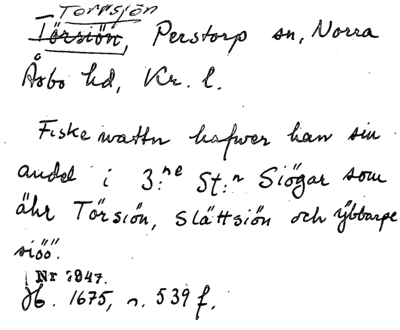 Torrsjön
Törsiön, Perstorp sn, Norra
Åsbo hd, Kr. l.
Fiske wattn hafwer han sin
andel i 3:ne St:n Siögar som
ähr Törsiön, Slättsiön och ÿbbarpe
siöö.
Nr 1947.
Jb. 1675, n. 539 f.